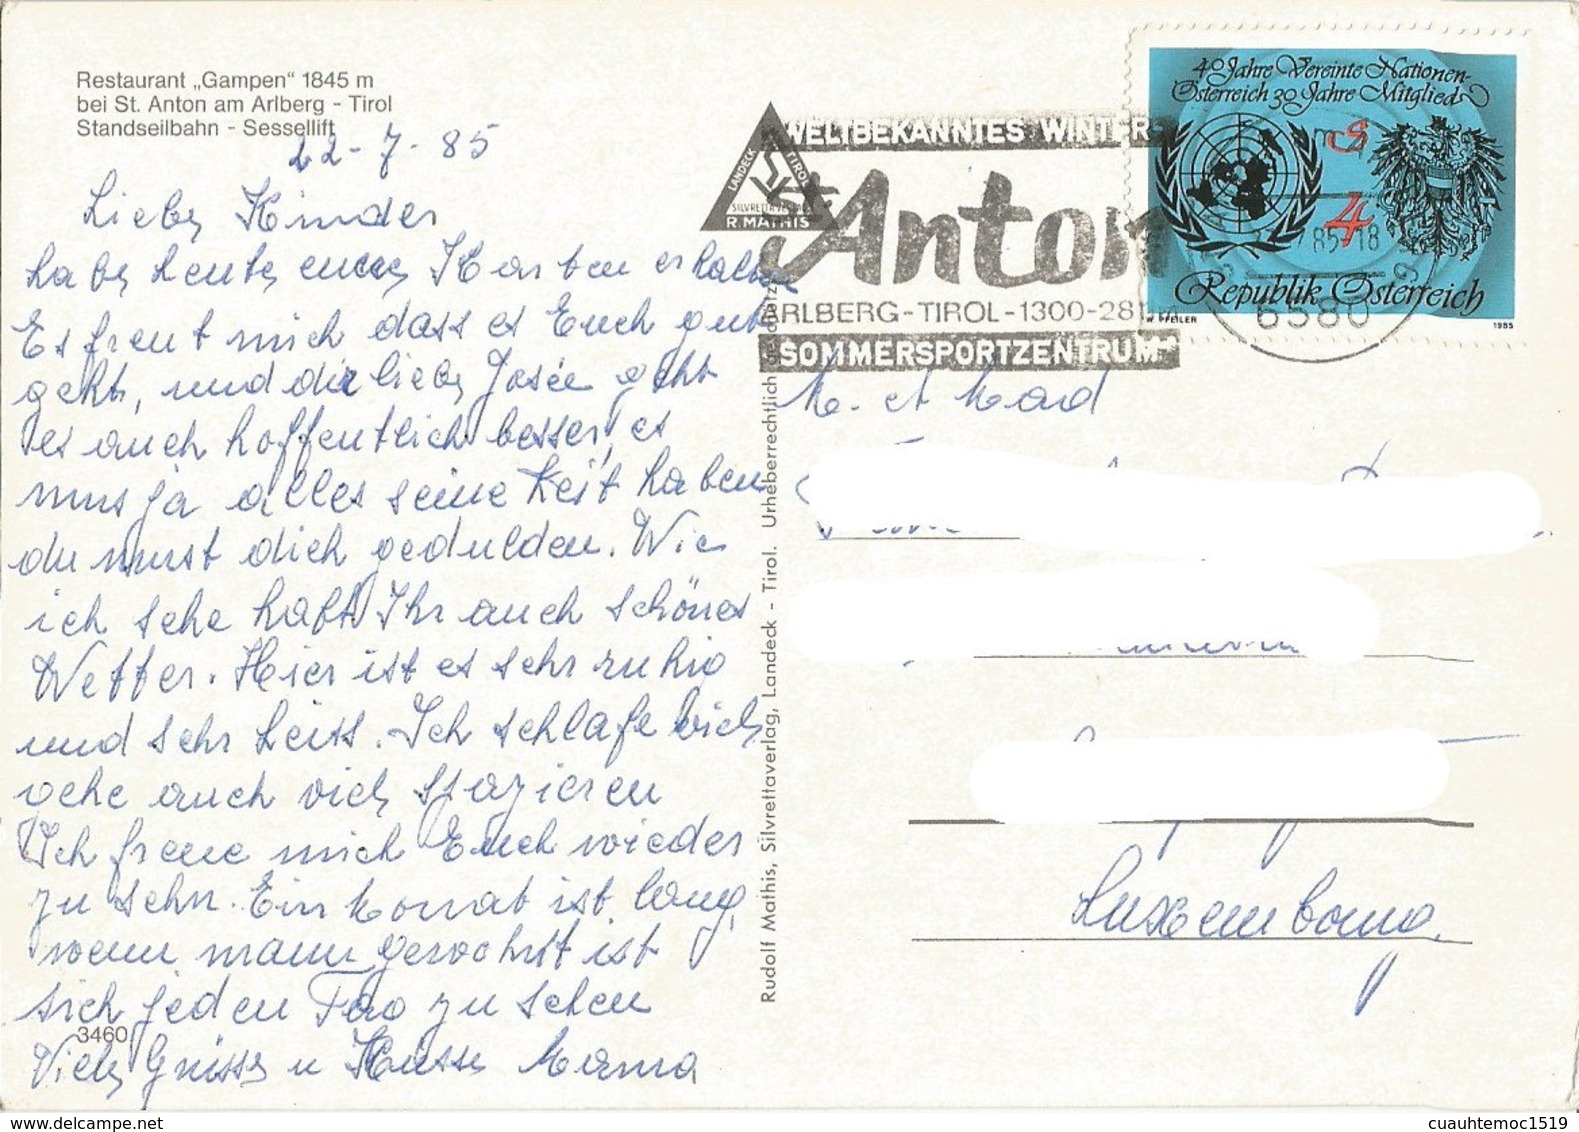 Restaurant „Gampen" 1845 m
bei St. Anton am Arlberg - Tirol
Standseilbahn - Sessellift
22-7-85
Liebe Kinder
habe heute eure Karten erhalten
Es freut mich dass es Euch gut
geht, und die liebe Josée geht
es auch hoffentlich besser, es
mus ja alles seine Zeit haben
du must dich gedulden. Wie
ich sehe habt Ihr auch schönes
Wetter. Hier ist es sehr ruhig
und sehr heiss. Ich schlafe viel,
gehe auch viel spazieren
Ich freue mich Euch wieder
zu sehn. Ein Monat ist lang,
wenn mann gewohnt ist
sich jeden Tag zu sehen
Viele Grüsse u Küsse Mama
3460
Rudolf Mathis, Silvrettaverlag, Landeck - Tirol. Urheberrechtlich geschützt.
LANDECK
TIROL
SILVRETTAVERLAG
R. MATHIS
WELTBEKANNTES WINTER-
St Anton
ARLBERG-TIROL-1300-2811
SOMMERSPORTZENTRUM
40 Jahre Vereinte Nationen-
Österreich 30 Jahre Mitglied
S
4
Republik Österreich
W PFEILER
1985
85-18
6580
M. et Mad
Luxembourg.
cuauhtemoc1519